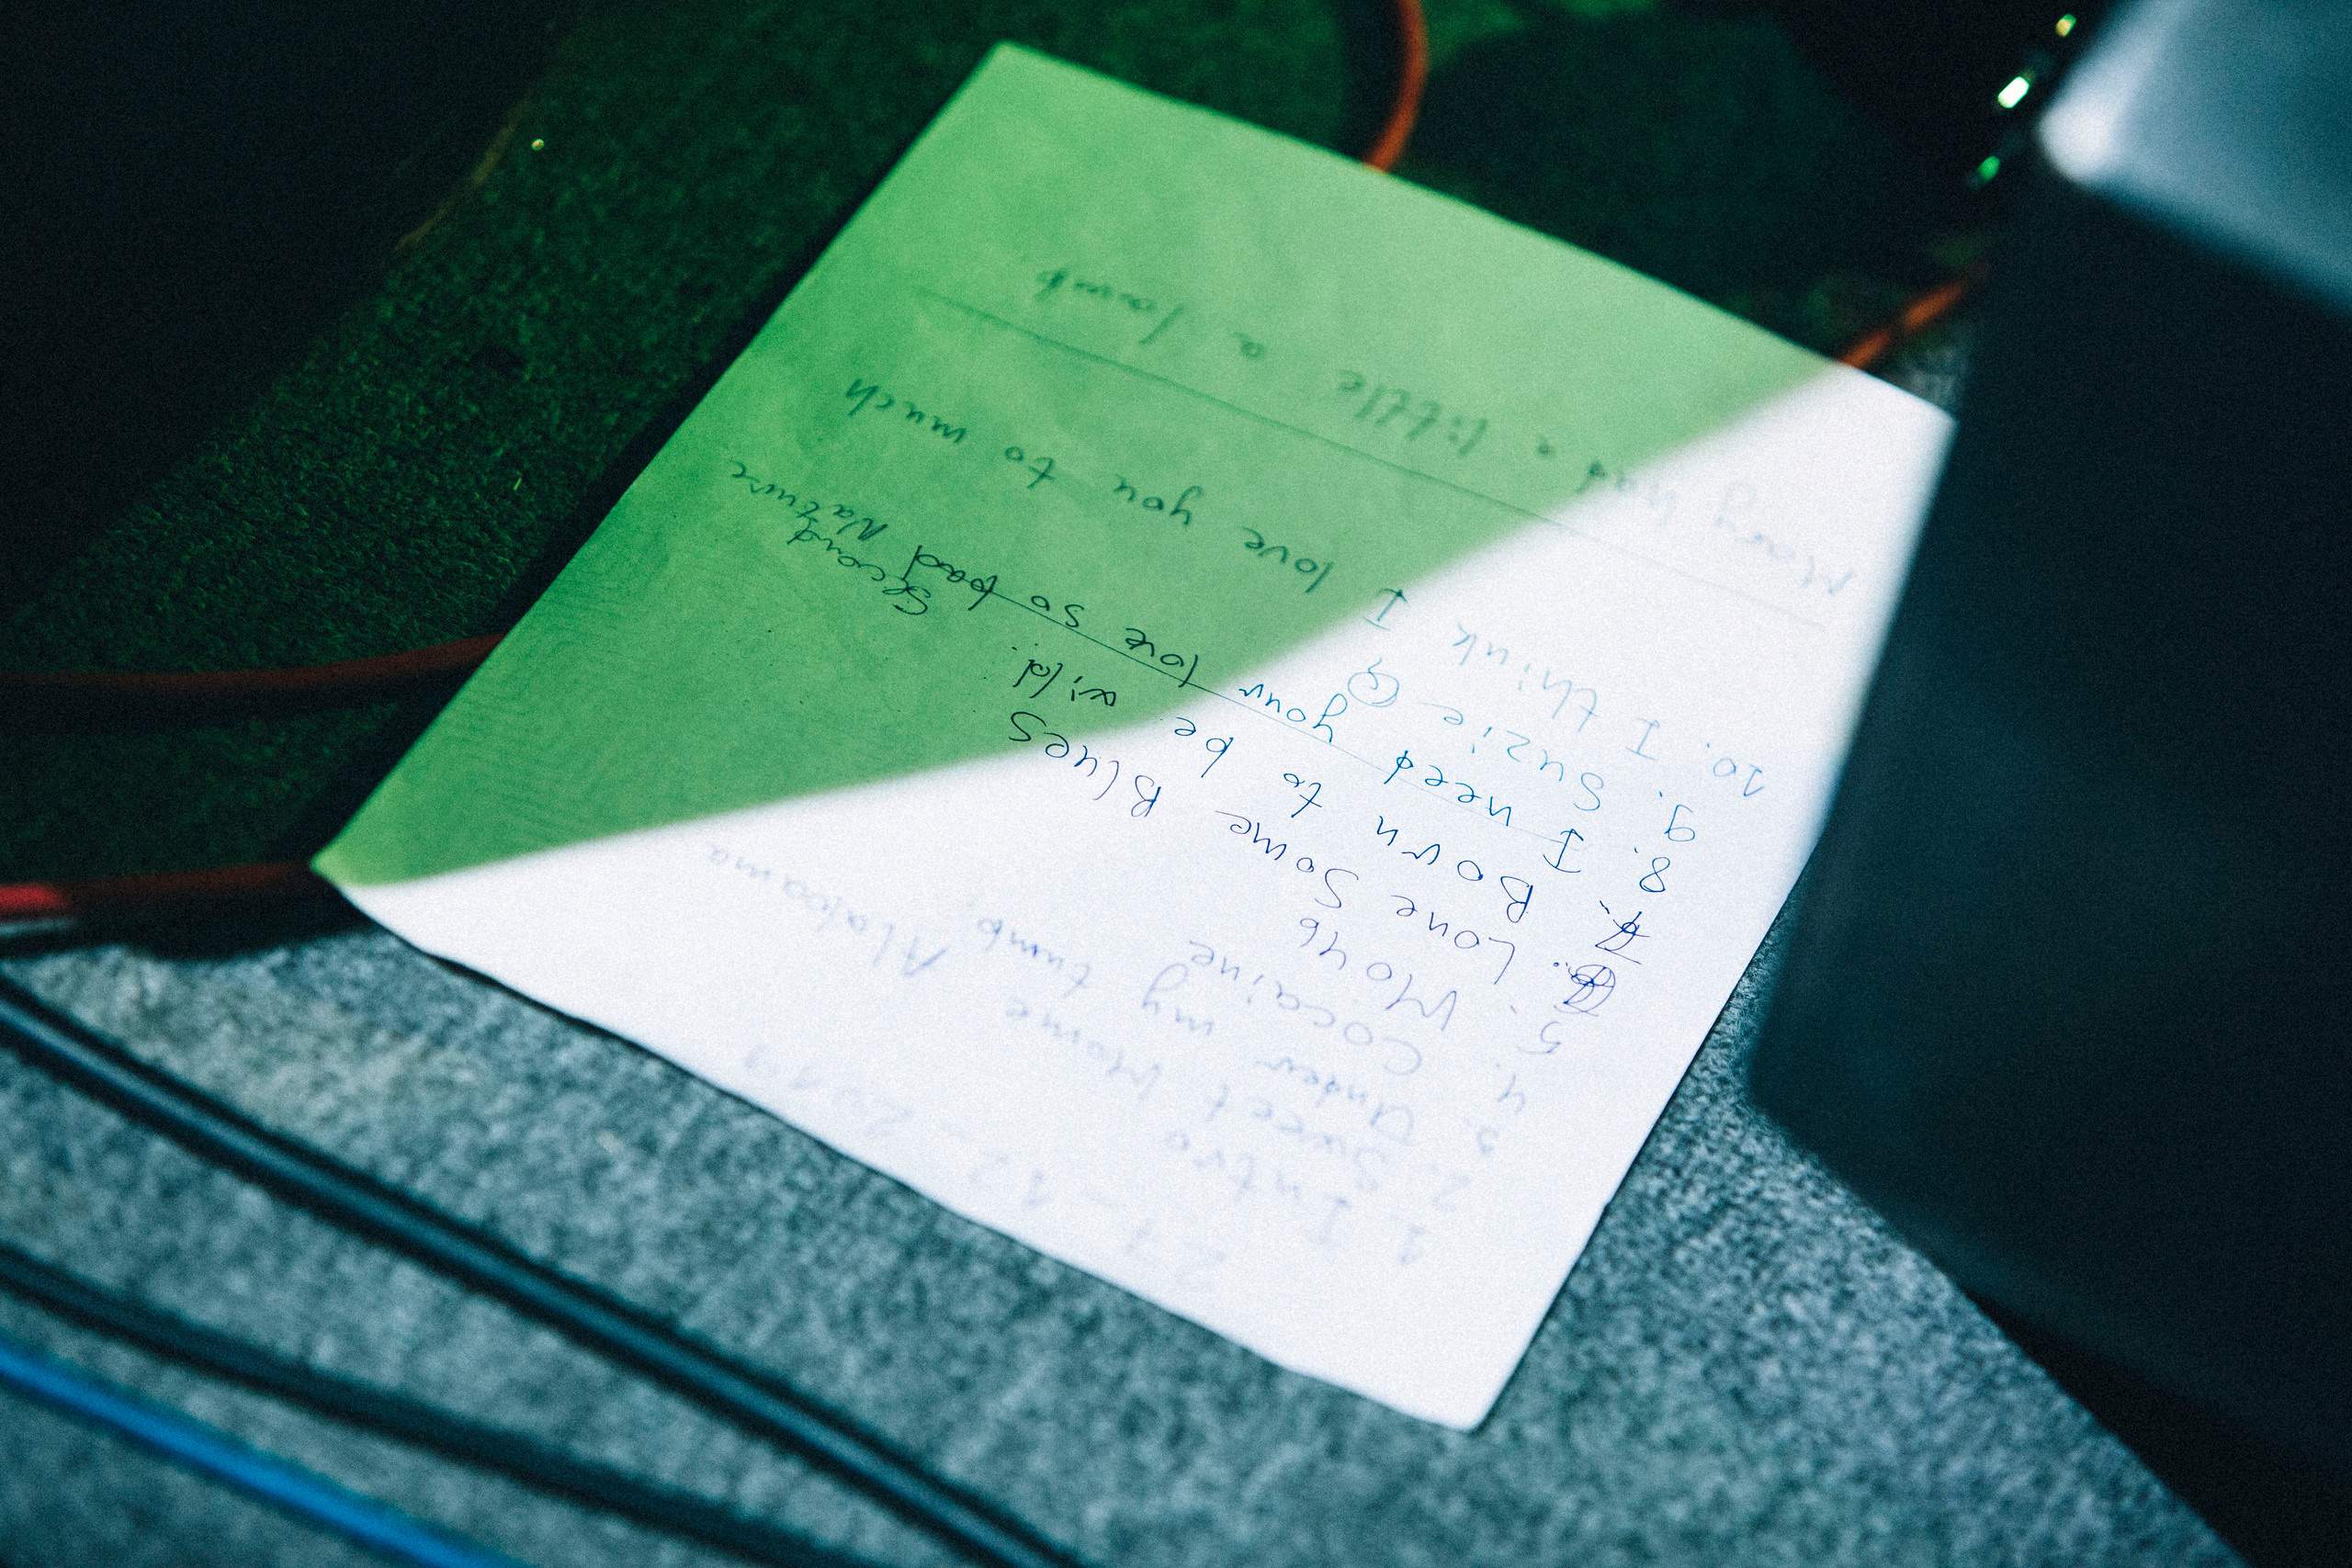 21-12-2019
1. Intro
2. Sweet Home Alabama
3. Under my tumb.
4. Cocaine
5.
6. Lone Some Blues
7. Born to be wild.
8. I need your love so bad Second Nature
9. Suzie Q
10. I think I love you to much
Mary had a little a lamb